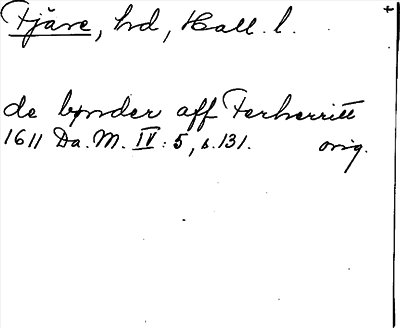 Fjäre, hd, Hall. l. +
de bønder aff Ferherritt
1611 Da. M. IV: 5, s. 131. orig.